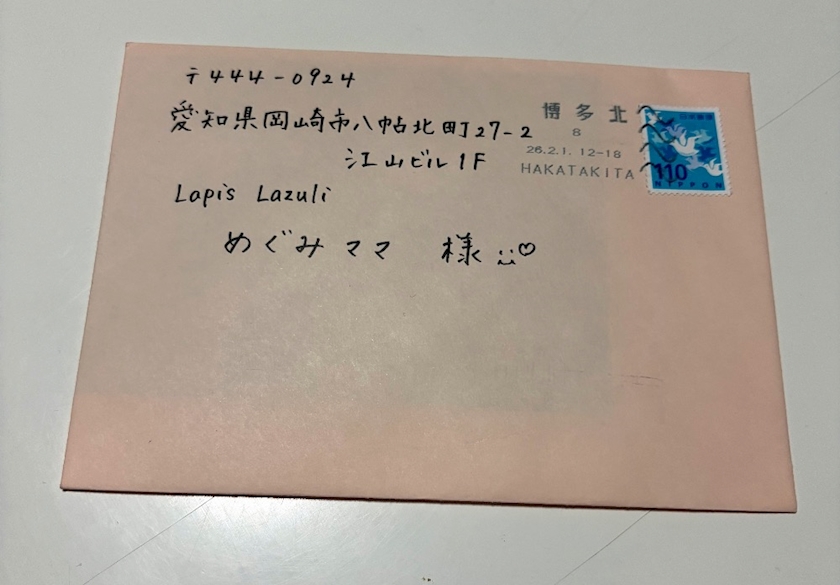 〒444-0924
愛知県岡崎市八帖北町27-2
江山ビル1F
Lapis Lazuli
めぐみママ 様
博多北
8
26.2.1. 12-18
HAKATAKITA
日本郵便
110
NIPPON